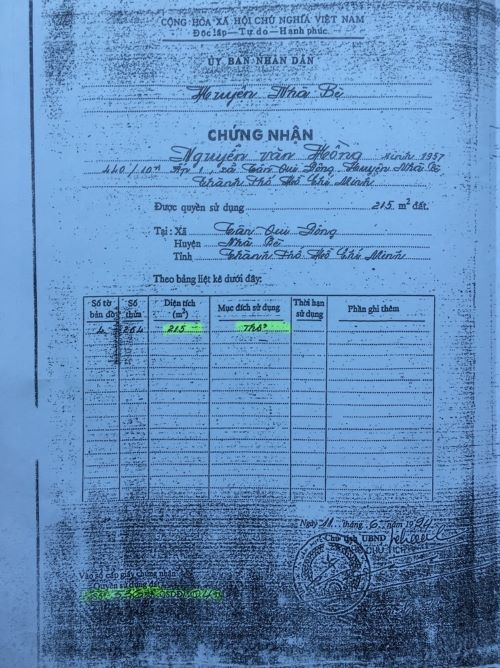 CỘNG HÒA XÃ HỘI CHỦ NGHĨA VIỆT NAM
Độc lập—Tự do—Hạnh phúc
ỦY BAN NHÂN DÂN
Huyện Nhà Bè
CHỨNG NHẬN
Nguyễn văn Hồng sinh 1957
440/10 Ấp 1, xã Tân Qui Đông, Huyện Nhà Bè
Thành Phố Hồ Chí Minh
Được quyền sử dụng 215 m² đất.
Tại: Xã Tân Qui Đông
Huyện Nhà Bè
Tỉnh Thành Phố Hồ Chí Minh
Theo bảng liệt kê dưới đây:
Số tờ bản đồ Số thửa Diện tích (m²) Mục đích sử dụng Thời hạn sử dụng Phần ghi thêm
4 264 215 Thổ
Ngày 11 tháng 6 năm 1994
Chủ tịch UBND
Vào sổ cấp giấy chứng nhận